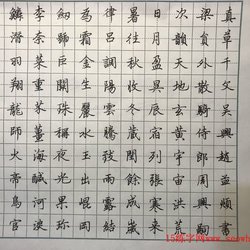 真草千文吳興趙孟頫書
梁員外散騎侍郎周興嗣
次韻天地玄黃宇宙洪荒
日月盈昃辰宿列張寒來
暑往秋收冬藏閏餘成歲
律呂調陽雲騰致雨露結
為霜金生麗水玉出崑岡
劍號巨闕珠稱夜光果珍
李柰菜重芥薑海鹹河淡
鱗潛羽翔龍師火帝鳥官